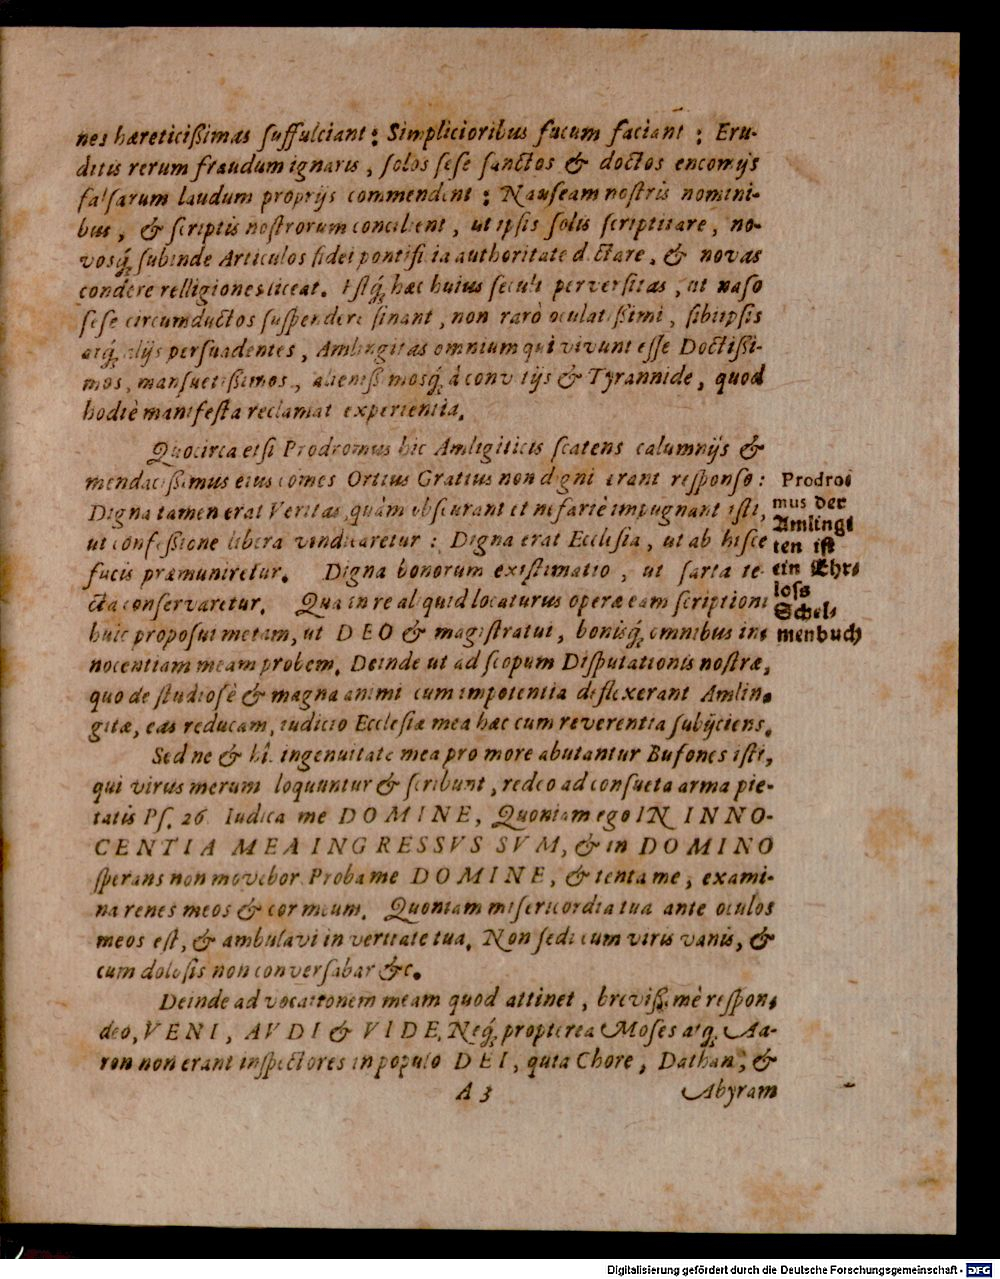 nes hæreticißimas suffulciant: Simplicioribus fucum faciant: Eru-
ditis rerum fraudum ignaris, solos sese sanctos & doctos encomijs
falsarum laudum proprijs commendent: Nauseam nostris nomini-
bus, & scriptis nostrorum concilient, ut ipsis solis scriptitare, no-
vosq́; subinde Articulos fidei pontificia authoritate dictare, & novas
condere relligiones liceat. Estq́; hæc huius seculi perversitas, ut naso
sese circumductos suspendere sinant, non rarò oculatißimi, sibiipsis
atq́; alijs persuadentes, Amlingitas omnium qui vivunt esse Doctißi-
mos, mansuetißimos, alienißimosq́; à convitijs & Tyrannide, quod
hodiè manifesta reclamat experientia.
Quocirca etsi Prodromus hic Amligiticis scatens calumnijs &
mendacißimus eius comes Ortius Gratius non digni erant responso:
Digna tamen erat Veritas, quàm obscurant et nefariè impugnant isti,
ut confeßione libera vindicaretur: Digna erat Ecclesia, ut ab hisce
fucis præmuniretur. Digna bonorum existimatio, ut sarta te-
cta conservaretur. Qua in re aliquid locaturus operæ eam scriptioni
huic proposui metam, ut DEO & magistratui, bonisq́; omnibus in-
nocentiam meam probem. Deinde ut ad scopum Disputationis nostræ,
quo de studiosè & magna animi cum impotentia deflexerant Amlin-
gitæ, eas reducam, iudicio Ecclesiæ mea hæc cum reverentia subijciens.
Sed ne & hî. ingenuitate mea pro more abutantur Bufones isti,
qui virus merum loquuntur & scribunt, redeo ad consueta arma pie-
tatis Ps. 26. Iudica me DOMINE, Quoniam ego IN INNO-
CENTIA MEA INGRESSVS SVM, & in DOMINO
sperans non movebor. Proba me DOMINE, & tenta me, exami-
na renes meos & cor meum. Quoniam misericordia tua ante oculos
meos est, & ambulavi in veritate tua. Non sedi cum viris vanis, &
cum dolosis non conversabar &c.
Deinde ad vocationem meam quod attinet, brevißimè respon-
deo, VENI, AVDI & VIDE, Neq́; propterea Moses atq́; Aa-
ron non erant inspectores in populo DEI, quia Chore, Dathan, &
A 3 Abyram
Prodro-
mus der
Amlingi
ten ist
ein Ehr-
loss
Schel-
menbuch
Digitalisierung gefördert durch die Deutsche Forschungsgemeinschaft - DFG